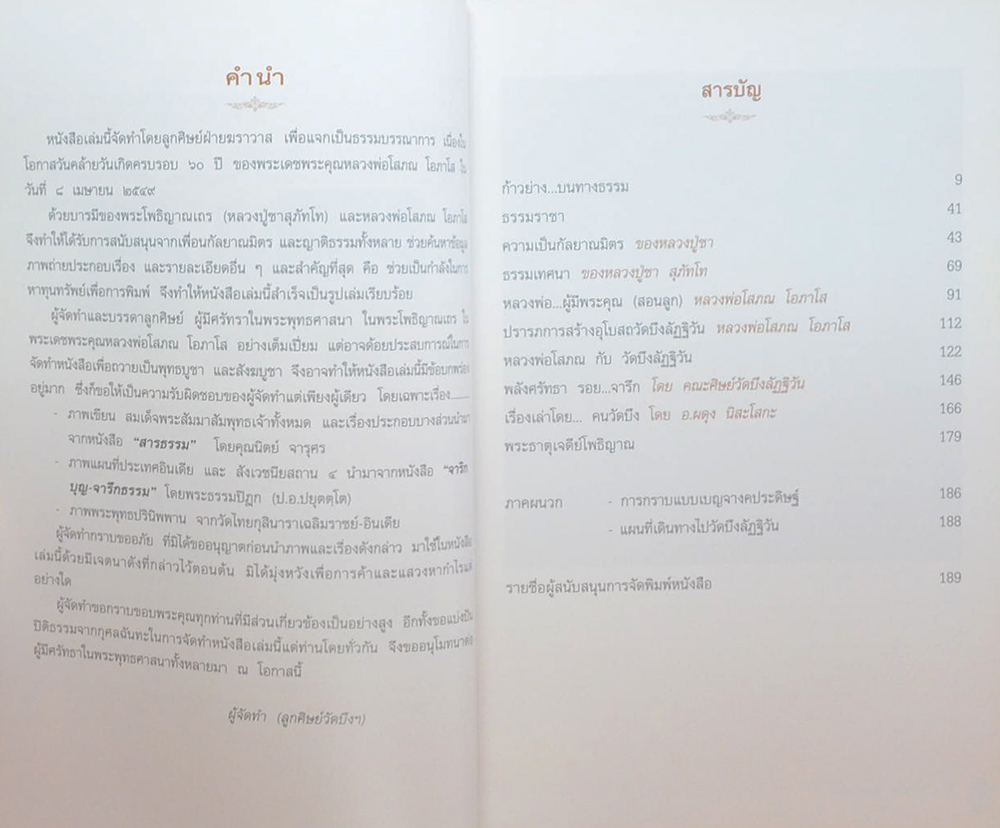 คำนำ
หนังสือเล่มนี้จัดทำโดยลูกศิษย์ฝ่ายฆราวาส เพื่อแจกเป็นธรรมบรรณาการ เนื่องใน
โอกาสวันคล้ายวันเกิดครบรอบ ๖๐ ปี ของพระเดชพระคุณหลวงพ่อโสภณ โอภาโส ใน
วันที่ ๘ เมษายน ๒๕๔๙
ด้วยบารมีของพระโพธิญาณเถร (หลวงปู่ชาสุภัทโท) และหลวงพ่อโสภณ โอภาโส
จึงทำให้ได้รับการสนับสนุนจากเพื่อนกัลยาณมิตร และญาติธรรมทั้งหลาย ช่วยค้นหาข้อมูล
ภาพถ่ายประกอบเรื่อง และรายละเอียดอื่น ๆ และสำคัญที่สุด คือ ช่วยเป็นกำลังในการ
หาทุนทรัพย์เพื่อการพิมพ์ จึงทำให้หนังสือเล่มนี้สำเร็จเป็นรูปเล่มเรียบร้อย
ผู้จัดทำและบรรดาลูกศิษย์ ผู้มีศรัทราในพระพุทธศาสนา ในพระโพธิญาณเถร ใน
พระเดชพระคุณหลวงพ่อโสภณ โอภาโส อย่างเต็มเปี่ยม แต่อาจด้อยประสบการณ์ในการ
จัดทำหนังสือเพื่อถวายเป็นพุทธบูชา และสังฆบูชา จึงอาจทำให้หนังสือเล่มนี้มีข้อบกพร่อง
อยู่มาก ซึ่งก็ขอให้เป็นความรับผิดชอบของผู้จัดทำแต่เพียงผู้เดียว โดยเฉพาะเรื่อง.........
- ภาพเขียน สมเด็จพระสัมมาสัมพุทธเจ้าทั้งหมด และเรื่องประกอบบางส่วนนำมา
จากหนังสือ “สารธรรม” โดยคุณนิตย์ จารุศร
- ภาพแผนที่ประเทศอินเดีย และ สังเวชนียสถาน ๔ นำมาจากหนังสือ “จาริก
บุญ-จารึกธรรม” โดยพระธรรมปิฎก (ป.อ.ปยุตตฺโต)
- ภาพพระพุทธปรินิพพาน จากวัดไทยกุสินาราเฉลิมราชย์-อินเดีย
ผู้จัดทำกราบขออภัย ที่มิได้ขออนุญาตก่อนนำภาพและเรื่องดังกล่าว มาใช้ในหนังสือ
เล่มนี้ด้วยมีเจตนาดังที่กล่าวไว้ตอนต้น มิได้มุ่งหวังเพื่อการค้าและแสวงหากำไรแต่
อย่างใด
ผู้จัดทำขอกราบขอบพระคุณทุกท่านที่มีส่วนเกี่ยวข้องเป็นอย่างสูง อีกทั้งขอแบ่งปัน
ปิติธรรมจากกุศลฉันทะในการจัดทำหนังสือเล่มนี้แด่ท่านโดยทั่วกัน จึงขออนุโมทนาต่อ
ผู้มีศรัทธาในพระพุทธศาสนาทั้งหลายมา ณ โอกาสนี้
ผู้จัดทำ (ลูกศิษย์วัดบึงฯ)
สารบัญ
ก้าวย่าง...บนทางธรรม 9
ธรรมราชา 41
ความเป็นกัลยาณมิตร ของหลวงปู่ชา 43
ธรรมเทศนา ของหลวงปู่ชา สุภัทโท 69
หลวงพ่อ...ผู้มีพระคุณ (สอนลูก) หลวงพ่อโสภณ โอภาโส 91
ปรารภการสร้างอุโบสถวัดบึงลัฏฐิวัน หลวงพ่อโสภณ โอภาโส 112
หลวงพ่อโสภณ กับ วัดบึงลัฏฐิวัน 122
พลังศรัทธา รอย...จารึก โดย คณะศิษย์วัดบึงลัฏฐิวัน 146
เรื่องเล่าโดย... คนวัดบึง โดย อ.ผดุง นิสะโสกะ 166
พระธาตุเจดีย์โพธิญาณ 179
ภาคผนวก - การกราบแบบเบญจางคประดิษฐ์ 186
- แผนที่เดินทางไปวัดบึงลัฏฐิวัน 188
รายชื่อผู้สนับสนุนการจัดพิมพ์หนังสือ 189